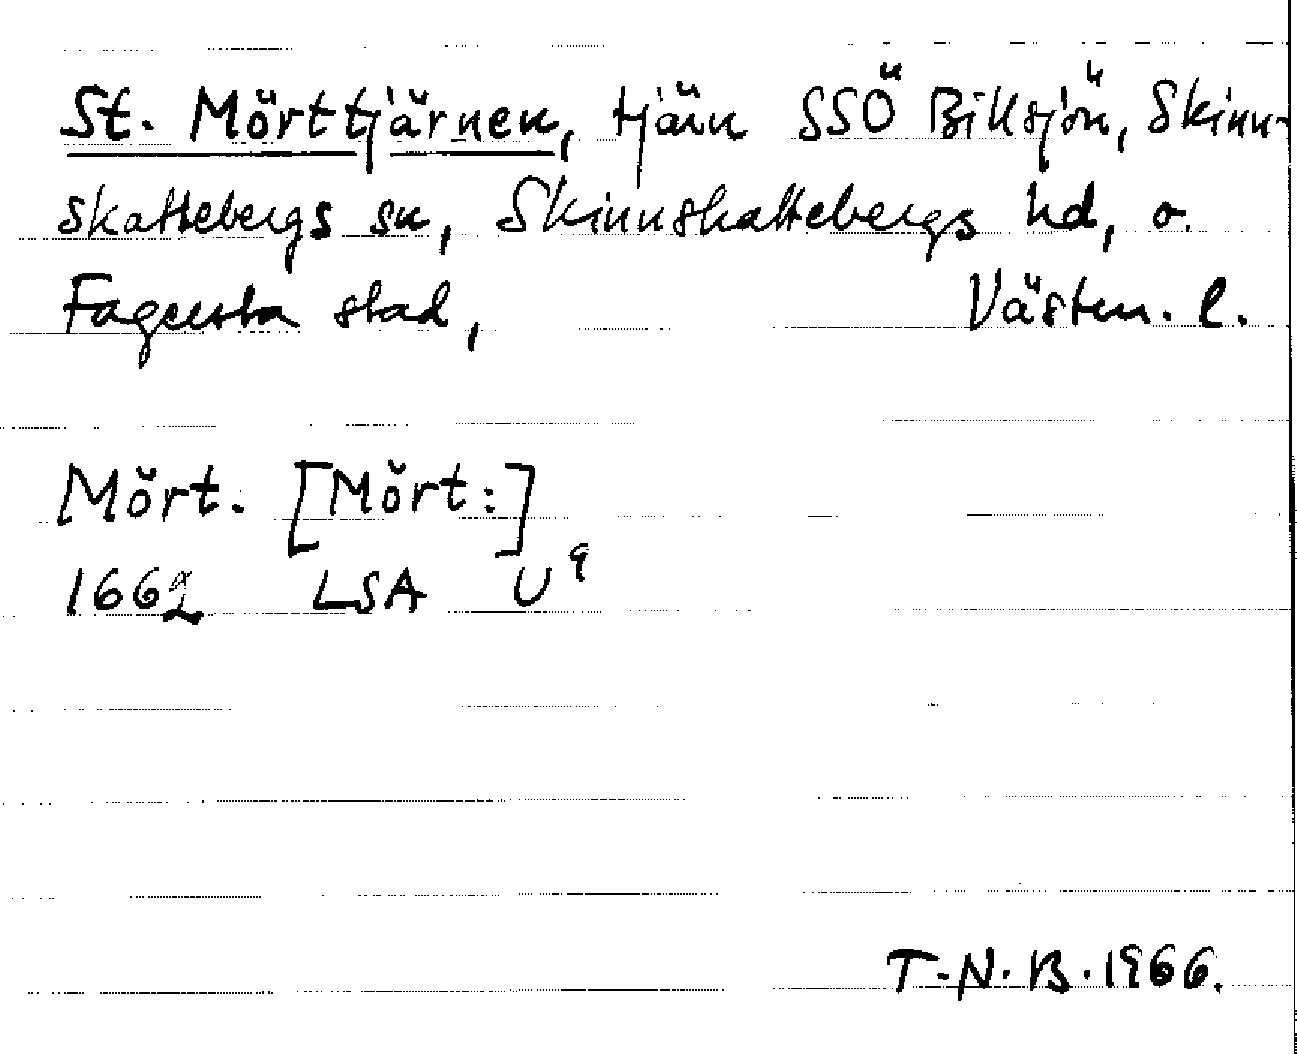 St. Mörttjärnen, tjärn SSÖ Bilksjön, Skinn-
skattebergs sn, Skinnskattebergs hd, o.
Fagersta stad, Västm. l.
Mört. [Mört:]
1662 LSA U 9
T.N.B. 1966.